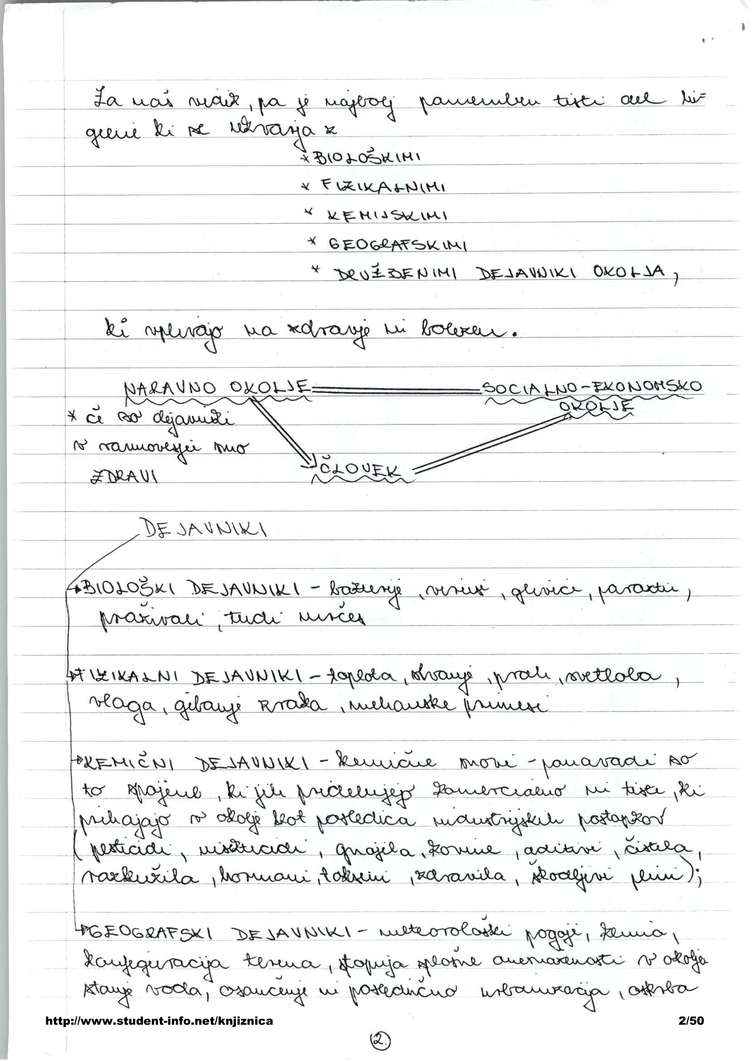 Za naš vidik, pa je najbolj pomemben tisti del hi=
giene ki se ukvarja z
* BIOLOŠKIMI
* FIZIKALNIMI
* KEMIJSKIMI
* GEOGRAFSKIMI
* DRUŽBENIMI DEJAVNIKI OKOLJA,
ki vplivajo na zdravje in bolezen.
NARAVNO OKOLJE SOCIALNO-EKONOMSKO
OKOLJE
* če so dejavniki
v ravnovesju smo
ZDRAVI
ČLOVEK
DEJAVNIKI
BIOLOŠKI DEJAVNIKI - bakterije, virusi, glivice, paraziti,
praživali, tudi mrčes
FIZIKALNI DEJAVNIKI - toplota, sevanje, prah, svetloba,
vlaga, gibanje zraka, mehanske primesi
KEMIČNI DEJAVNIKI - kemične snovi - ponavadi so
to spojine, ki jih pridelujejo komercialno in tiste, ki
prihajajo v okolje kot posledica industrijskih postopkov
(pesticidi, insekticidi, gnojila, kovine, aditivi, čistila,
razkužila, hormoni, toksini, zdravila, škodljivi plini);
GEOGRAFSKI DEJAVNIKI - meteorološki pogoji, klima,
konfiguracija terena, stopnja splošne onesnaženosti v okolju
stanje voda, osončenje in posledično urbanizacija, oskrba
http://www.student-info.net/knjiznica 2/50
2.